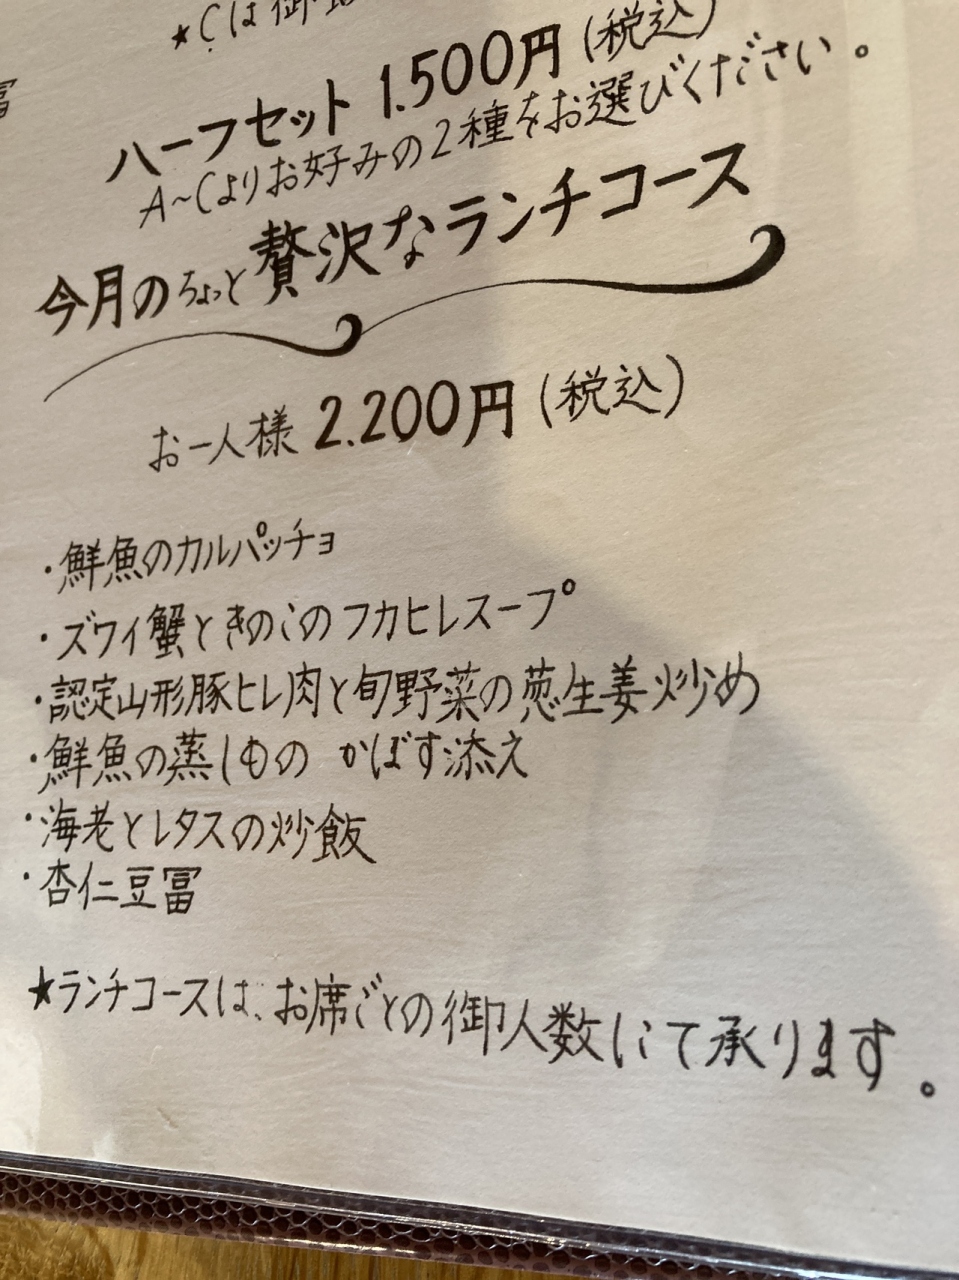 ★Cは御
ハーフセット 1.500円(税込)
A~Cよりお好みの2種をお選びください。
今月のちょっと贅沢なランチコース
お一人様 2.200円(税込)
・鮮魚のカルパッチョ
・ズワイ蟹ときのこのフカヒレスープ
・認定山形豚ヒレ肉と旬野菜の葱生姜炒め
・鮮魚の蒸しもの かぼす添え
・海老とレタスの炒飯
・杏仁豆冨
★ランチコースは、お席ごとの御人数にて承ります。